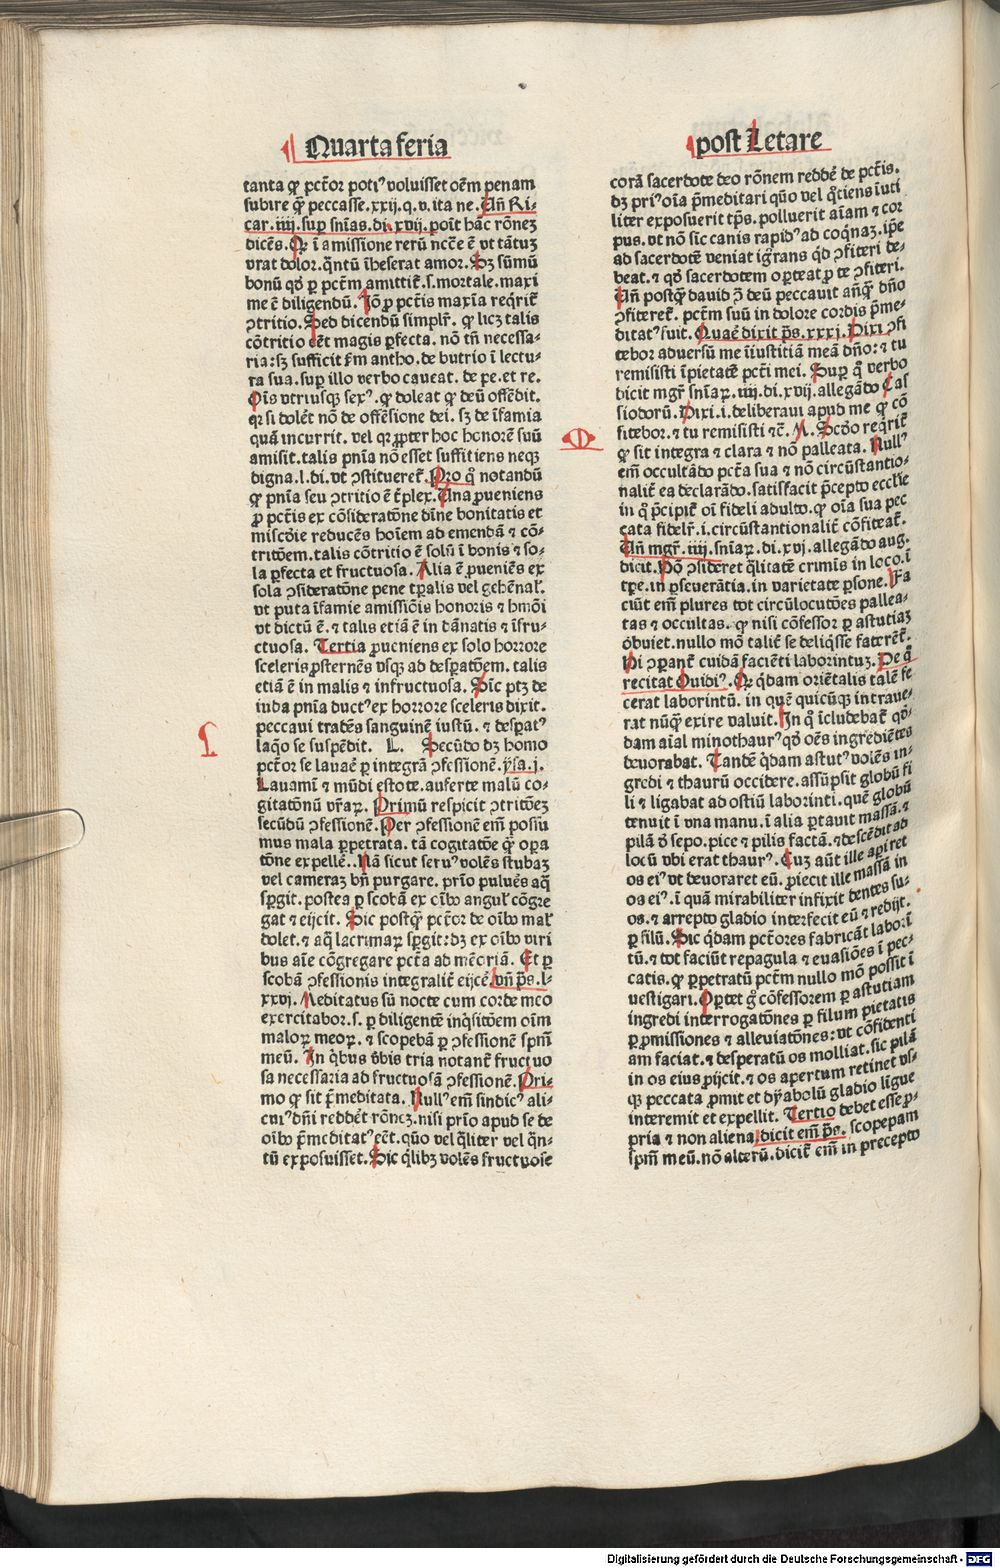 Quarta feria
post Letare
tanta qꝫ pct̄or potiꝰ voluisset oēm penam
subire qꝫ̄ peccasse.xxij.q.v.ita ne.Uñ Ri-
car.iiij.sup sn̄ias.di.xvij.poīt hāc rōneꝫ
dicēs.Qꝛ ī amissione rerū nccē̄ ē vt tātuꝫ
vrat dolor.q̄ntū īheserat amor.Sꝫ sūmū
bonū qd̓ ꝑ pct̄m amittit̄.s.mortale.maxi
me ē diligendū.Iō ꝓ pct̄is maxīa req̄rit̄
ꝯtritio.Sed dicendū simplr̄.ꝙ licꝫ talis
cōtritio eēt magis ꝑfecta.nō tn̄ necessa-
ria:sꝫ sufficit ẜm antho.de butrio ī lectu-
ra sua.sup illo verbo caueat.de pe.et re.
Oīs vtriusqꝫ sexꝰ.ꝙ doleat ꝙ deū offēdit.
qꝛ si dolēt nō de offēsione dei.sꝫ de īfamia
quā incurrit.vel qꝛ ꝓpter hoc honorē suū
amisit.talis pn̄ia nō esset suffitiens neqꝫ
digna.l.di.vt ꝯstitueret̄.Pro q̊ notandū
ꝙ pn̄ia seu ꝯtritio ē t̄plex.Una ꝓueniens
ꝓ pct̄is ex cōsideratōne dīne bonitatis et
miscd̓ie reducēs hoīem ad emendā ⁊ cō-
tritōem.talis cōtritio ē solū ī bonis ⁊ so-
la ꝑfecta et fructuosa.Alia ē ꝓueniēs ex
sola ꝯsideratōne pene tꝑalis vel gehēnaƚ.
vt puta īfamie amissiōis honoris ⁊ hmōi
vt dictū ē.⁊ talis etiā ē in dānatis ⁊ īfru-
ctuosa. Tertia ꝓueniens ex solo horrore
sceleris ꝓsternēs vsqꝫ ad desꝑatōem.talis
etiā ē in malis ⁊ infructuosa.Sic ptꝫ de
iuda pn̄ia ductꝰ ex horrore sceleris dixit.
peccaui tradēs sanguinē iustū.⁊ desꝑatꝰ
laq̊o se suspēdit. L. Secūdo dꝫ homo
pct̄or se lauaē ꝑ integrā ꝯfessionē.ysa.j.
Lauamī ⁊ mūdi estote.auferte malū co-
gitatōnū vr̄aꝝ.Primū respicit ꝯtritōeꝫ
secūdū ꝯfessionē.Per ꝯfessionē em̄ possu
mus mala ꝑpetrata.tā cogitatōe qꝫ̄ oꝑa
tōne expellē.Nā sicut seruꝰ volēs stubaꝫ
vel cameraꝫ bn̄ purgare.prīo puluēs aq̄
sꝑgit.postea ꝑ scobā ex oīb̓ anguƚ cōgre
gat ⁊ eijcit.Sic postqꝫ̄ pct̄or de oīb̓ maƚ
dolet.⁊ aq̄ lacrimaꝝ sꝑgit:dꝫ ex oīb̓ viri
bus aīe cōgregare pct̄a ad mēoriā.Et ꝑ
scobā ꝯfessionis integralit̄ eijcē.vñ p̄s.l-
xxvj.Meditatus sū nocte cum corde meo
exercitabor.s.ꝑ diligentē inq̄sitōem oīm
maloꝝ meoꝝ.⁊ scopebā ꝑ ꝯfessionē spm̄
meū.In q̄bus v̓bis tria notant̄ fructuo
sa necessaria ad fructuosā ꝯfessionē.Pri-
mo ꝙ sit p̄meditata.Nullꝰ em̄ sindicꝰ ali-
cuiꝰ dn̄i reddēt rōneꝫ.nisi prīo apud se de
oīb̓ p̄meditatꝰ eēt.quō vel q̄liter vel q̄n-
tū exposuisset.Sic q̄libꝫ volēs fructuose
corā sacerdote deo rōnem reddē de pct̄is.
dꝫ priꝰ oīa p̄meditari quō vel q̊tiens īuti
liter exposuerit tp̄s.polluerit aīam ⁊ cor
pus.vt nō sic canis rapidꝰ ad coq̄naꝫ.ip̄e
ad sacerdotē veniat igr̄ans qd̓ ꝯfiteri de-
beat.⁊ qd̓ sacerdotem oꝑteat ꝓ te ꝯfiteri.
Uñ postqꝫ̄ dauid ꝯ̄ deū peccauit anq̄ꝫ dn̄o
ꝯfiteret̄.pct̄m suū in dolore cordis p̄me-
ditatꝰ fuit.Quaē dixit p̄s.xxxj.Dixi ꝯfi
tebor aduersū me īiustitiā meā dn̄o:⁊ tu
remisisti īpietatē pct̄i mei.Supꝛ q̊ verbo
dicit mgr̄ sn̄iaꝝ.iiij.di.xvij.allegādo Cas
siodorū.Dixi.i.deliberaui apud me ꝙ cō
fitebor.⁊ tu remisisti ⁊c̄.M.Scd̓o req̄rit̄
ꝙ sit integra ⁊ clara ⁊ nō palleata.Nullꝰ
em̄ occultādo pct̄a sua ⁊ nō circūstantio-
nalit̄ ea declarādo.satisfacit p̄cepto ecclīe
in q̊ p̄cipit̄ oī fideli adulto.ꝙ oīa sua pec
cata fidelr̄.i.circūstantionalit̄ cōfiteat̄.
Uñ mgr̄.iiij.sn̄iaꝝ.di.xvj.allegādo aug.
dicit.Pō ꝯsideret q̄litatē crimīs in loco.ī
tꝑe.in ꝑseuerātia.in varietate ꝑsone.Fa
ciūt em̄ plures tot circūlocutōes pallea-
tas ⁊ occultas.ꝙ nisi cōfessor ꝑ astutiaꝫ
obuiet.nullo mō talit̄ se deliq̄sse fateret̄.
Hi ꝯparant̄ cuidā faciēti laborintuꝫ.De q̊
recitat Ouidiꝰ.Qꝛ q̄dam oriētalis talē fe
cerat laborintū.in quē quicūqꝫ intraue-
rat nūq̄ꝫ exire valuit.In q̊ īcludebat̄ qd̓-
dam aīal minothaurꝰ qd̓ oēs ingrediētes
deuorabat.Tandē q̄dam astutꝰ volēs in-
gredi ⁊ thaurū occidere.assūpsit globū fi
li ⁊ ligabat ad ostiū laborinti.quē globū
tenuit ī vna manu.ī alia portauit massā.⁊
pilā d̓ sepo.pice ⁊ pilis factā.⁊ descēdit ad
locū vbi erat thaurꝰ.Cuꝫ aūt ille aꝑiret
os eiꝰ vt deuoraret eū.ꝓiecit ille massā in
os eiꝰ.ī quā mirabiliter infixit dentes su-
os.⁊ arrepto gladio interfecit eū ⁊ redijt.
ꝑ filū.Sic q̄dam pct̄ores fabricāt laborī
tū.⁊ tot faciūt repagula ⁊ euasiōes ī pec-
catis.ꝙ ꝑpetratū pct̄m nullo mō possit ī
uestigari.Oꝑtet g̊ cōfessorem ꝑ astutiam
ingredi interrogatōnes ꝑ filum pietatis
ꝑ ꝓmissiones ⁊ alleuiatōnes:vt cōfidenti
am faciat.⁊ desperatū os molliat.sic pilā
in os eius ꝓijcit.⁊ os apertum retinet vs-
qꝫ peccata ꝓmit et dyabolū gladio līgue
interemit et expellit. Tertio debet esse ꝓ-
pria ⁊ non aliena.dicit em̄ p̄s. scopepam
spm̄ meū.nō alterū.dicit̄ em̄ in precepto
Digitalisierung gefördert durch die Deutsche Forschungsgemeinschaft - DFG